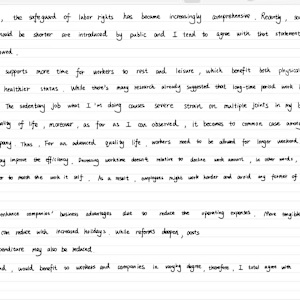 , the safeguard of labor rights has become increasingly comprehensive. Recently, so
hould be shorter are introduced by public and I tend to agree with that statement
oward.
supports more time for workers to rest and leisure, which benefit both physical
healthier status. While there's many research already suggested that long-time period work
The sedentary job what I've doing causes severe strain on multiple joints in my b
ality of life, moreover, as far as I can observed, it becomes to common case amon
pany. Thus, For an advanced quality life workers need to be allowed for longer weekend
improve the efficiency. Increasing worktime doesn't relative to decline work amount, in other words,
to meet the work it self. As a result, employees might work harder and avoid any former of
enhance companies' business advantages due to reduce the operating expenses. More tangible
can reduce with increased holidays while reforms deepen, costs
penditure may also be reduced.
nd, would benefit to workers and companies in varying degree, therefore, I total agree with